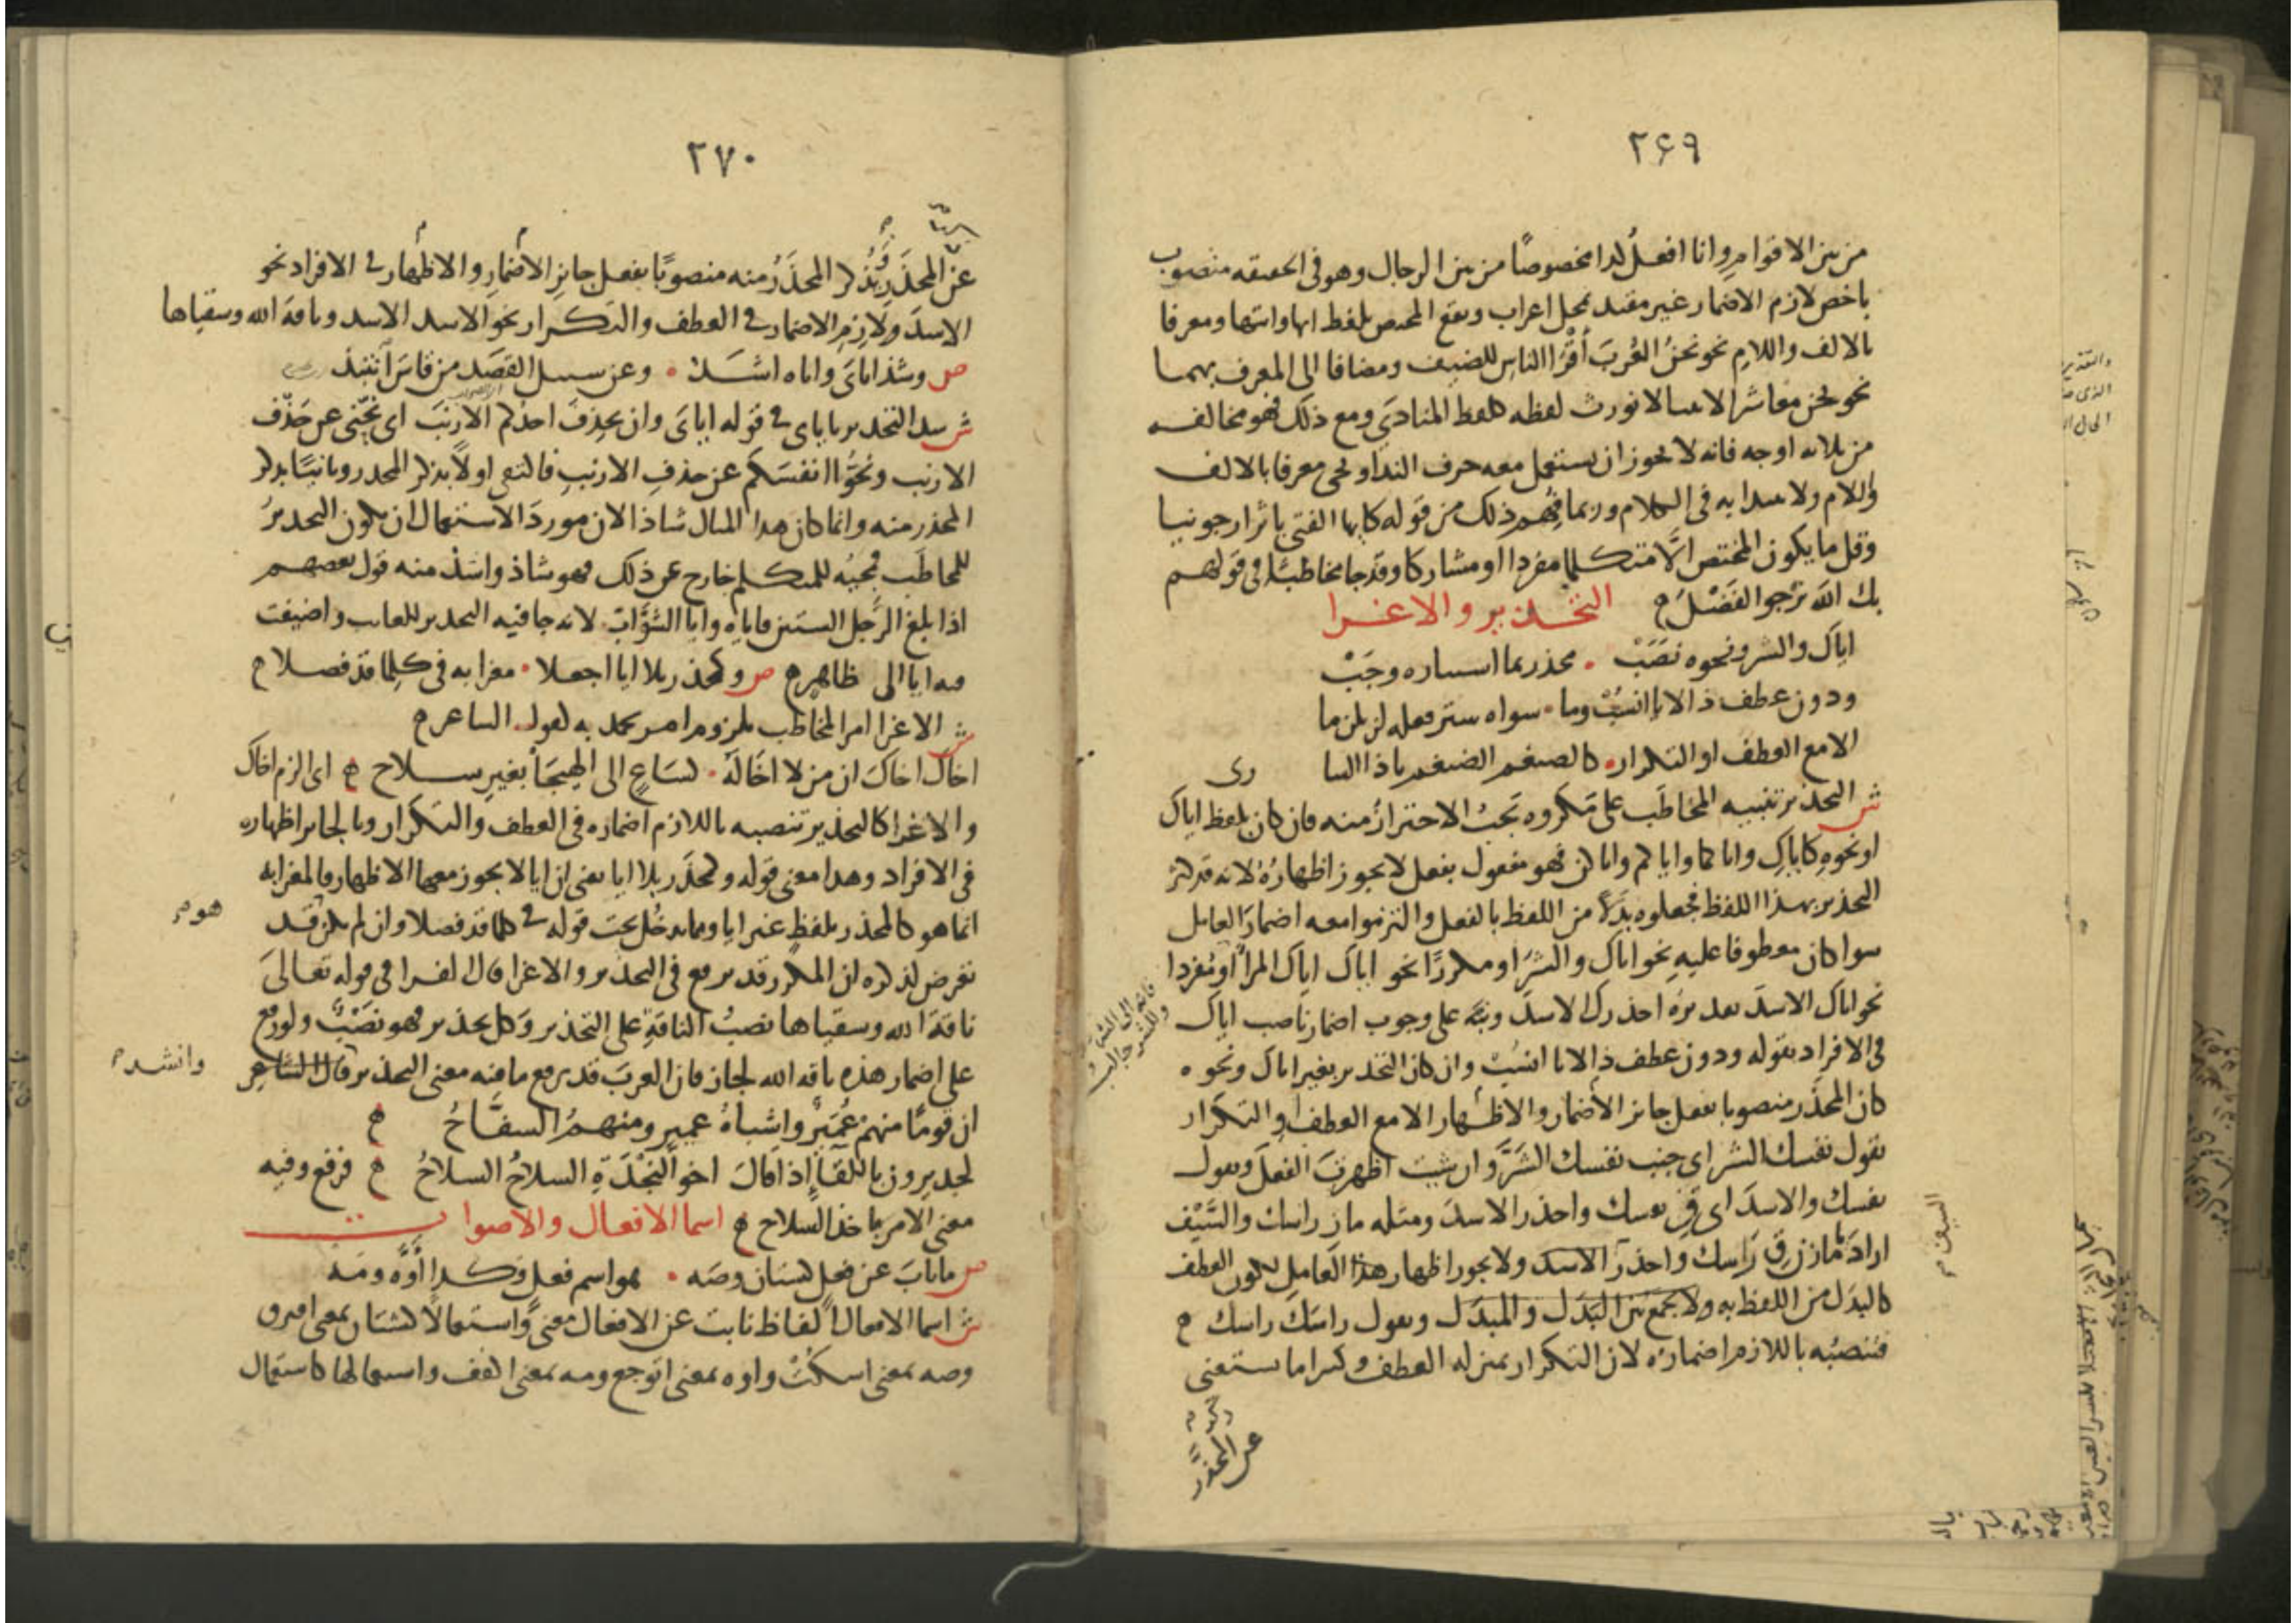 ٢٦٩
من بين الاقوام وانا افعل كذا مخصوصًا من بين الرجال وهو في الحقيقه منصوب
باخص لازم الاضمار غير مقيد بمحل اعراب ويقع المختص بلفظ ايها وايتها ومعرفا
بالالف واللام نحو نحنُ العُربَ أَقْرَا الناسِ للضيف ومضافا الى المعرف بهما
نحو نحن معاشر الانبيا لا نورث لفظه كلفظ المنادى ومع ذلك فهو مخالف
من ثلاثه اوجه فانه لا يجوز ان يستعمل معه حرف الندا ويجي معرفا بالالف
واللام ولا يبدا به في الكلام وربما فُهم ذلك من قوله كايها الفتى باثر ارجونيا
وقل ما يكون المختص الّا متكلما مفردا او مشاركا وقد جا مخاطبًا في قولهم
بك اللهَ نرجو الفَضْلَ
التحذير والاغرا
اياك والشر ونحوه نصَبْ ٠ محذر بما استتاره وجَبْ
ودون عطف ذا لايا انسُبْ وما ٠ سواه ستر فعله لن يلزما
الا مع العطف او التكرار ٠ كالضيغم الضيغم يا ذا السا رى
ش التحذير تنبيه المخاطَب على مكروه تجبُ الاحترازُ منه فان كان بلفظ اياك
او نحوه كاياكِ واياكما واياكم واياكن فهو مفعول بفعل لا يجوز اظهارُهُ لانه قد كثر
التحذير بهذا اللفظ فجعلوه بدَلًا من اللفظ بالفعل والتزموا معه اضمارَ العامل
سوا كان معطوفا عليهِ نحو اياك والشرَّ او مكررًا نحو اياك اياك المرآ او مُفردا
نحو اياك الاسدَ تقديرُه احذرك الاسدَ ونبَّه على وجوب اضمار ناصب اياك
في الافراد بقوله ودون عطف ذا لايا انسُبْ وان كان التحذير بغير اياك ونحوه
كان المحذَّر منصوبا بفعل جائز الاضمار والاظهار الا مع العطف او التكرار
تقول نفسك الشر اي جنب نفسك الشَرَّ وان شيت اظهرتَ الفعلَ وتقول
نفسك والاسدَ اي قِ نفسك واحذر الاسدَ ومثله مازِ راسك والسَّيْف
ارادَ يا مازن قِ رَاسك واحذر الاسد ولا يجوز اظهار هذا العامل لكون العطف
كالبدَل من اللفظ به ولا يجمع بين البَدَل والمبدَل وتقول راسَك راسك
فتنصبُه باللازم اضمارُه لان التكرار بمنزله العطف وكثيرا ما يستغنى
عن المحذَّر
فانه الى الشر
وللشر جالب
السيف
٢٧٠
عن المحذَرِ بذكر المحذَرُ منه منصوبًا بفعل جايزِ الاضمارِ والاظهار في الافراد نحو
الاسدَ ولازمِ الاضمار في العطف والتكرار نحو الاسد الاسد وناقة الله وسقياها
ص وشذ اياىَ واياه اشَذّ ٠ وعن سبيل القصَد من قاسَ انتبذ
ش شذ التحذير باياى في قوله اياىَ وان يحذِفَ احدكم الارنبَ اى نحّني عن حَذْف
الارنب ونحُّوا انفسَكم عن حذفِ الارنبِ فاكتفى اولًا بذكر المحذر وثانيًا بذكر
المحذر منه وانما كان هذا المثال شاذا لان موردَ الاستعمال ان يكون التحذيرُ
للمخاطَب فمجيُه للمتكلم خارج عن ذلك فهو شاذ واشذ منه قول بعضهم
اذا بلغ الرَّجل الستين فاياهِ وايا الشوَّابّ لانه جا فيه التحذير للغايب واضيفت
فيه ايا الى ظاهر ص وكمحذر بلا ايا اجعلا ٠ مغرا به في كلما قد فصلا
ش الاغرا امر المخاطب بلزوم امر يحمد به كقول الشاعر
اخاك اخاكَ ان من لا اخَا لَهُ ٠ كسَاعٍ الى الهيجَا بغيرِ سلاح اى الزم اخاك
والاغرا كالتحذير تنصبه باللازم اضماره في العطف والتكرار وبالجايز اظهاره
في الافراد وهذا معنى قوله وكمحذَر بلا ايا يعنى ان ايا لا يجوز معها الاظهار فالمغرا به
انما هو كالمحذر بلفظ غير ايا ومما يدخُل تحت قوله في كلما قد فصلا وان لم يكن قد
تعرض لذكره ان المكرر قد يرفع في التحذير والاغرا قال الفرا في قوله تعالىَ
ناقةَ الله وسقياها نصبُ الناقةِ على التحذير وَكل تحذير فهو نَصْبٌ ولو رفع
على اضمار هذه ناقة الله لجاز فان العربَ قد يرفع ما فيه معنى التحذير قال الشاعر
ان قومًا منهمْ عُمَيْرٌ واشباهُ عميرٍ ومنهمُ السفَّاحُ
لجديرون باللقآءِ اذا قالَ اخو النجْدَةِ السلاحُ السلاحُ فرفع وفيه
معنى الامر باخذ السلاح اسما الافعال والاصوات
ص ما نابَ عن فعل كشتان وصَه ٠ هو اسم فعل وكذا أَوَّه ومَه
ش اسما الافعال ألفاظ نابت عن الافعال معنىً واستعمالًا كشتان بمعنى افترق
وصه بمعنى اسكتْ واوه بمعنى اتوجع ومه بمعنى اكفف واستعمالها كاستعمال
هو
وانشد